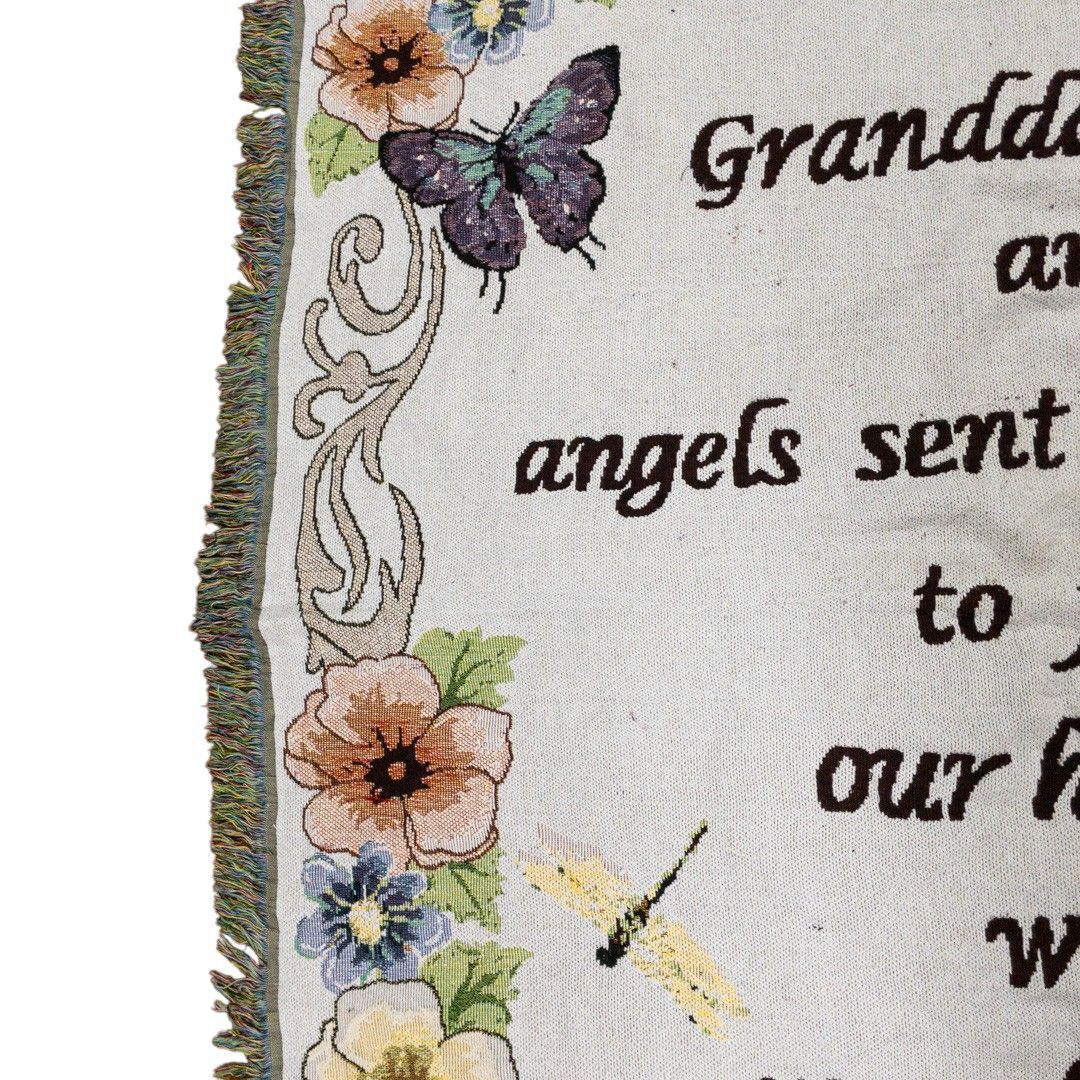 Granddd
ar
angels sent
to
our h
w